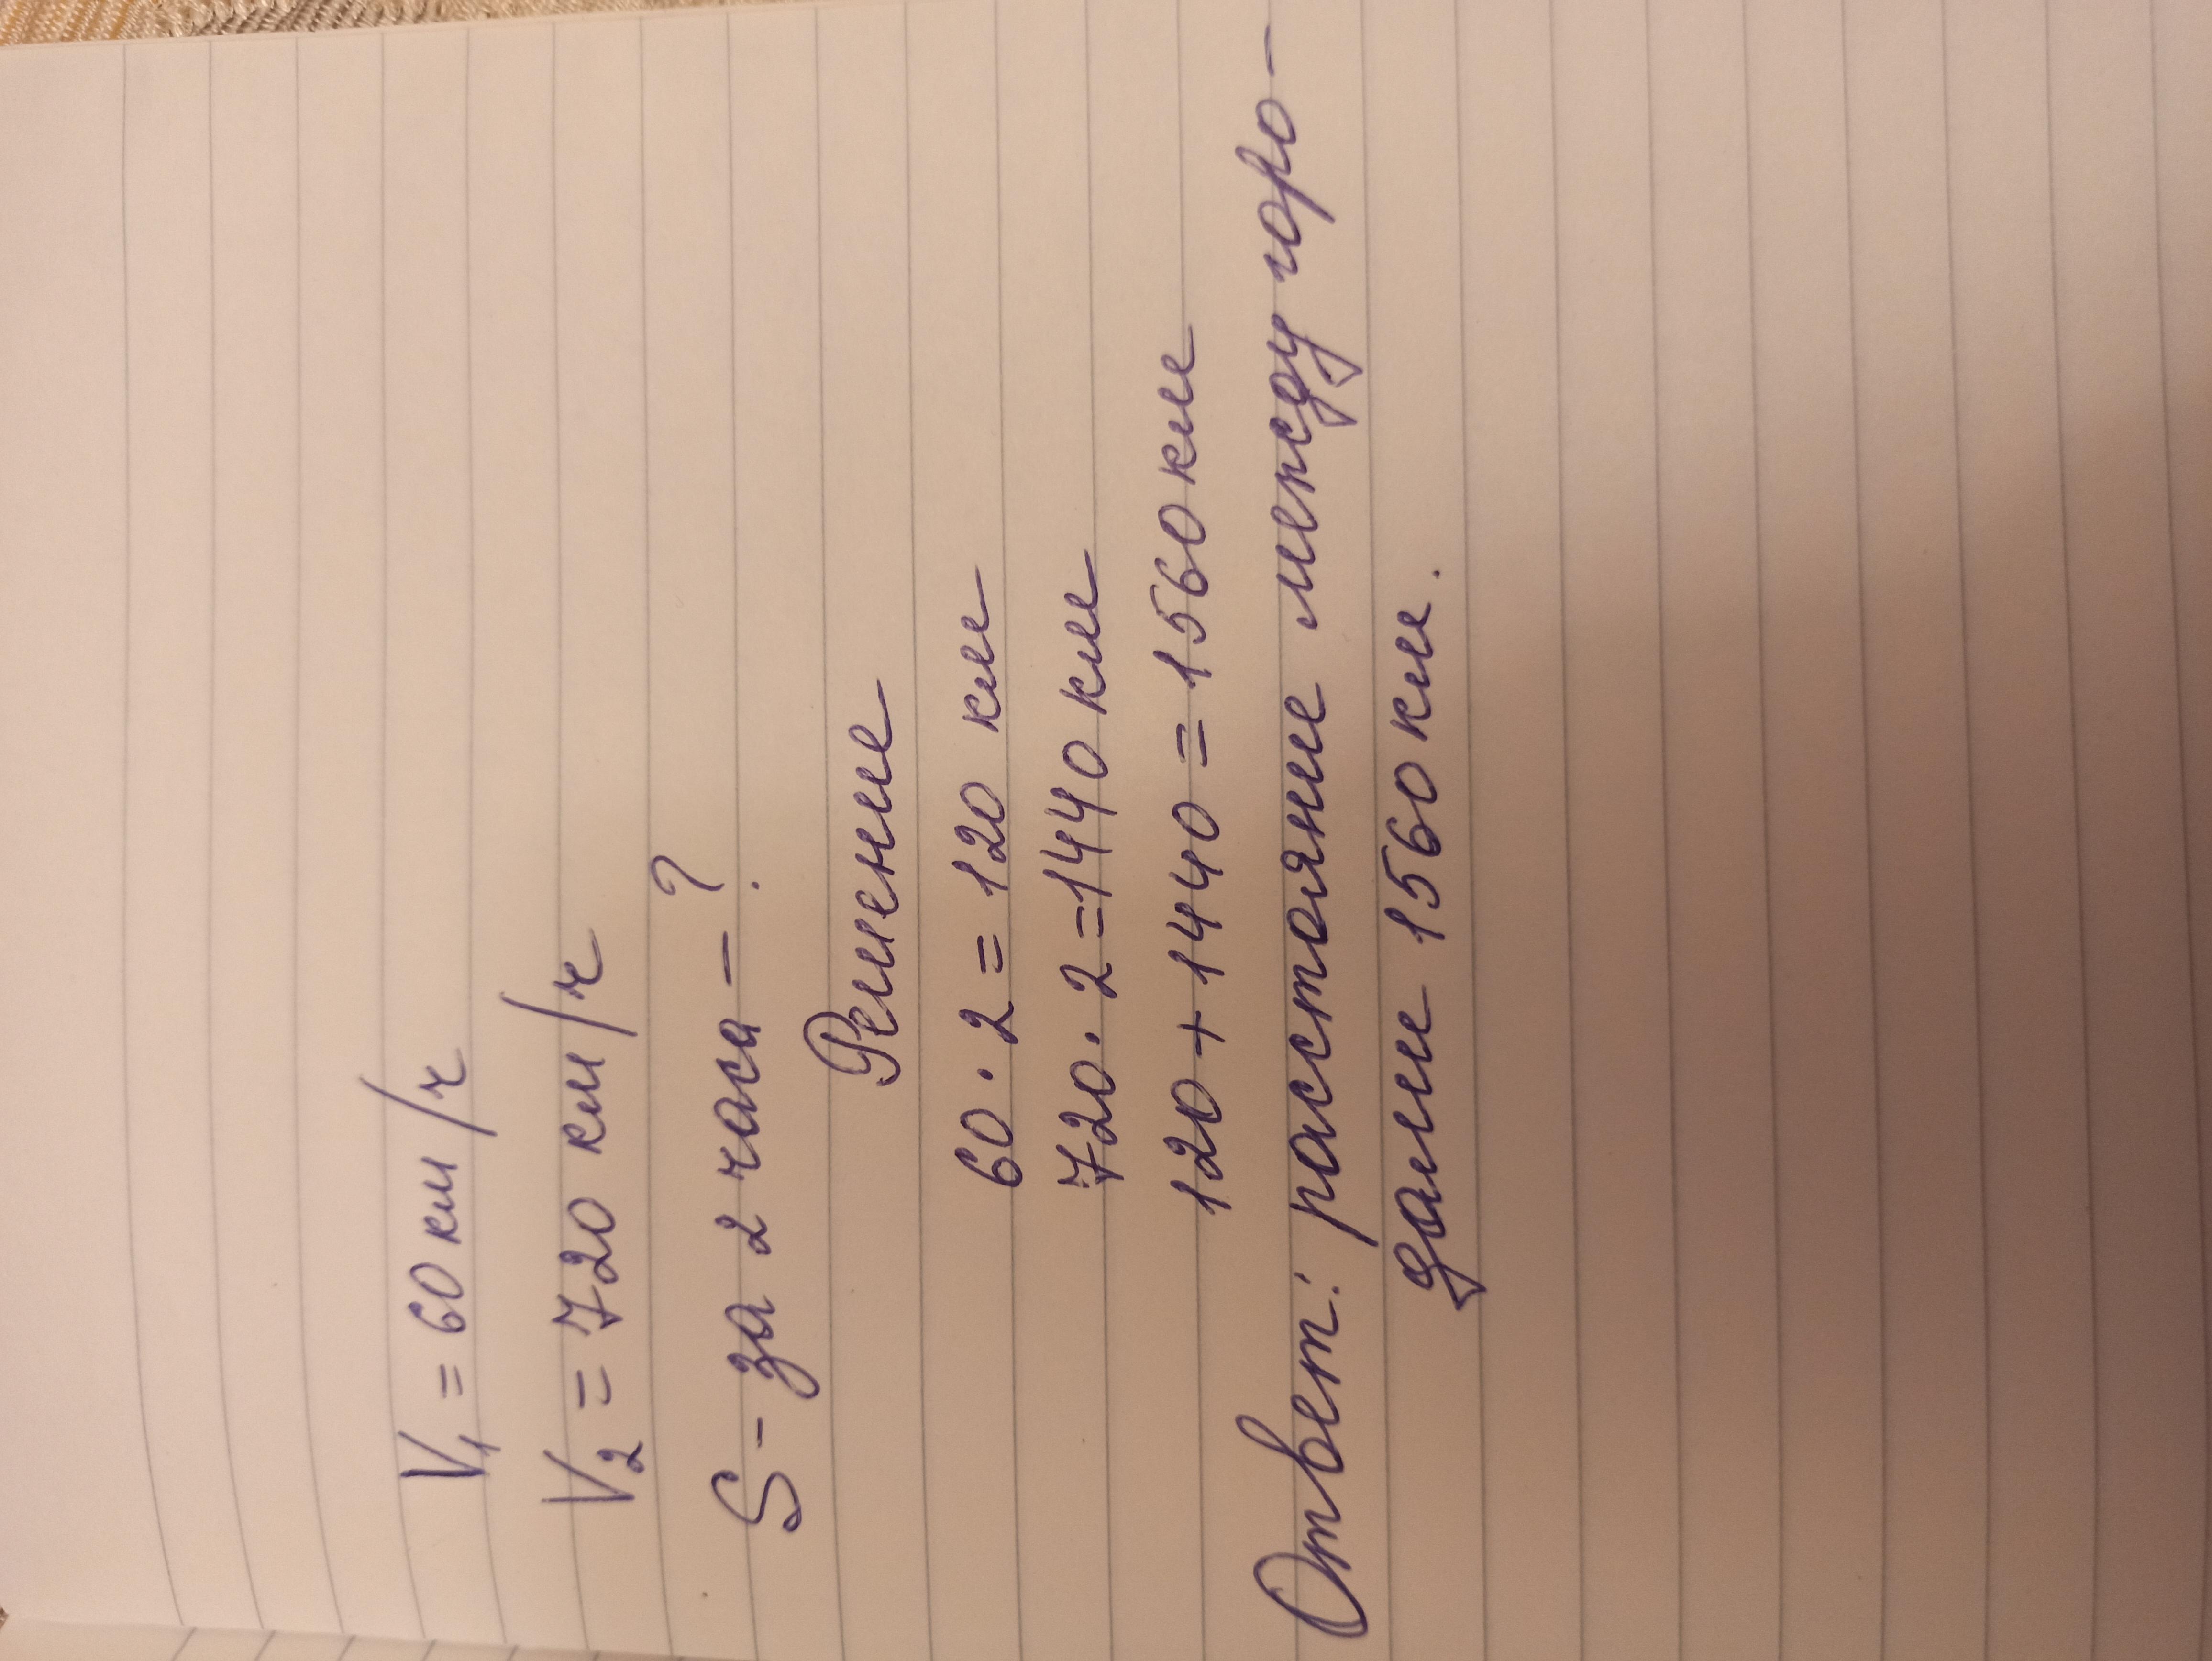 V₁ = 60 км/ч
V₂ = 720 км/ч
S - за 2 часа - ?
Решение
60 · 2 = 120 км
720 · 2 = 1440 км
120 + 1440 = 1560 км
Ответ: расстояние между горо-
дами 1560 км.